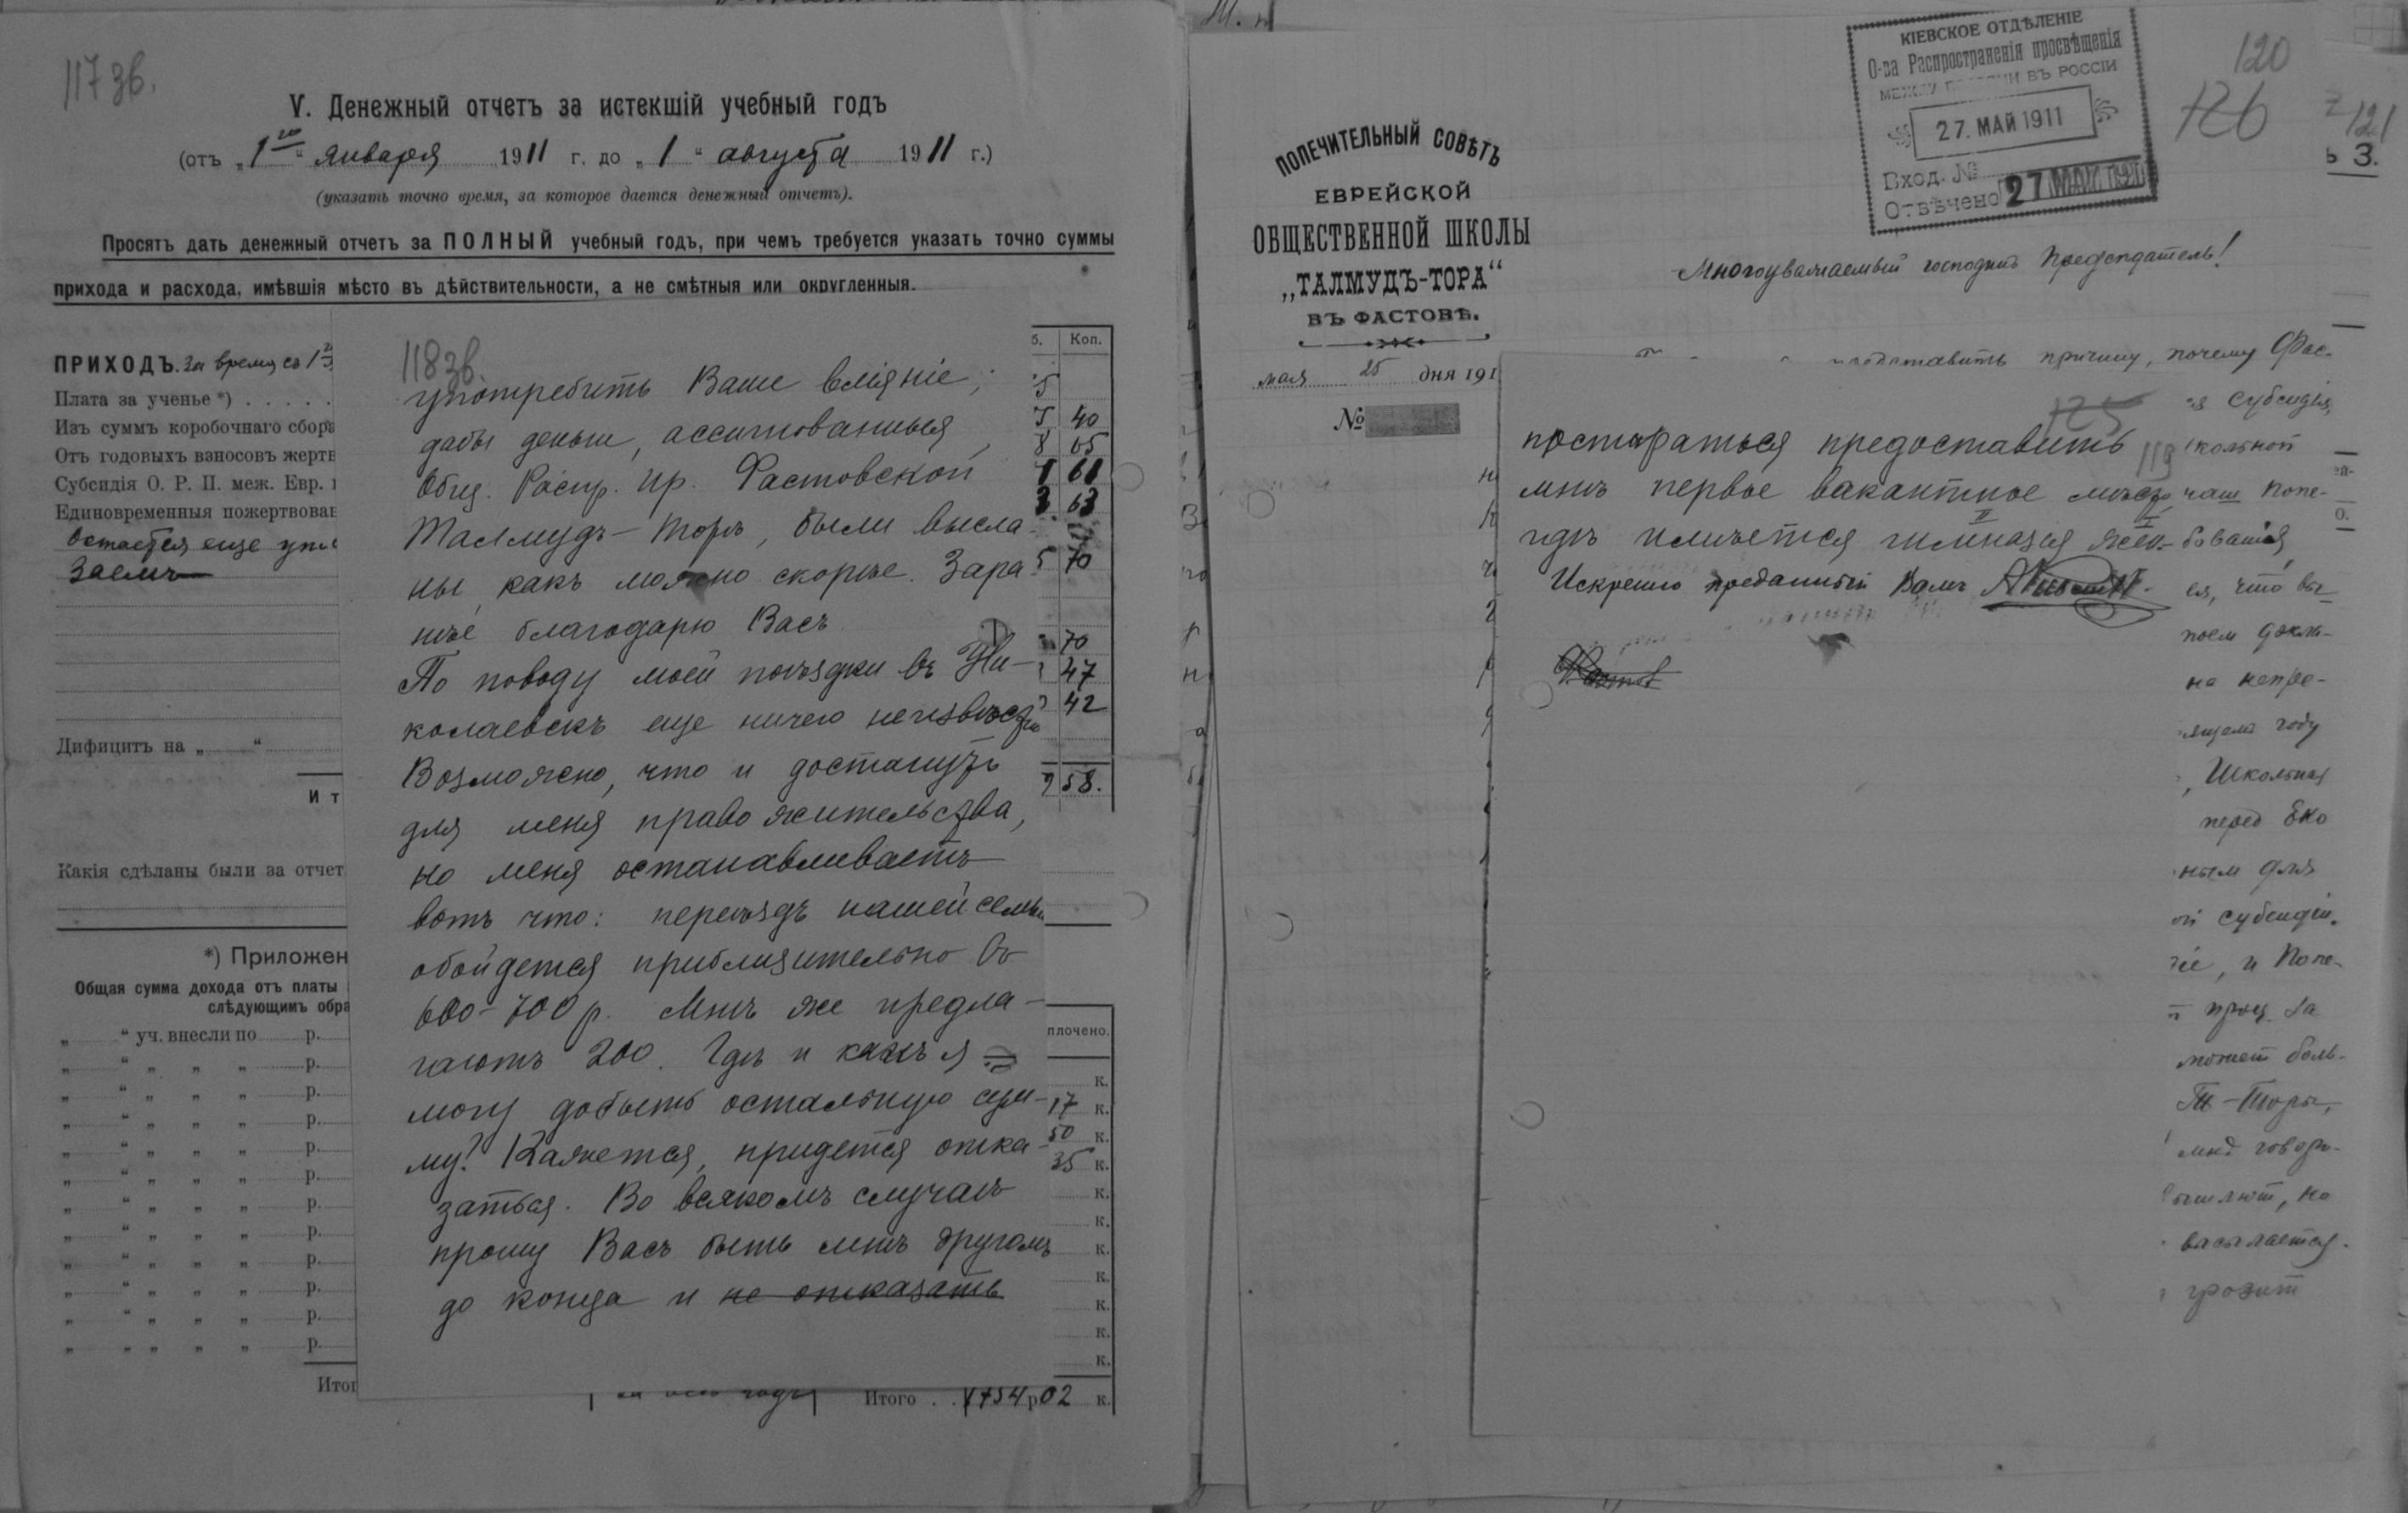 117 зв.
V. Денежный отчетъ за истекшій учебный годъ
(отъ „1го“ января 1911 г. до „1“ августа 1911 г.)
(указать точно время, за которое дается денежный отчетъ).
Просятъ дать денежный отчетъ за ПОЛНЫЙ учебный годъ, при чемъ требуется указать точно суммы
прихода и расхода, имѣвшія мѣсто въ дѣйствительности, а не смѣтныя или округленныя.
б. Коп.
ПРИХОДЪ. За время съ 1
Плата за ученье *) . . . . .
Изъ суммъ коробочнаго сбора
Отъ годовыхъ взносовъ жертв
Субсидія О. Р. П. меж. Евр.
Единовременныя пожертвован
Остается еще
Заемъ
5
5 40
8 05
1 61
3 63
5 70
70
47
42
9 58.
Дифицитъ на „ “
И т
Какія сдѣланы были за отчет
*) Приложен
Общая сумма дохода отъ платы
слѣдующимъ обра
„ “ уч. внесли по р.
„ “ „ „ „ р.
„ “ „ „ „ р.
„ “ „ „ „ р.
„ “ „ „ „ р.
„ “ „ „ „ р.
„ “ „ „ „ р.
„ “ „ „ „ р.
„ “ „ „ „ р.
„ “ „ „ „ р.
„ “ „ „ „ р.
„ „ „ „ „ р.
Итог
плочено.
к.
17 к.
50 к.
35 к.
к.
к.
к.
к.
к.
к.
к.
Итого . . 1754 р 02 к.
118 зв.
употребить Ваше вліяніе,
дабы деньги, ассигнованныя
Общ. Распр. Пр. Фастовской
Талмудъ-Торѣ, были высла-
ны, какъ можно скорѣе. Зара-
нѣе благодарю Васъ
По поводу моей поѣздки въ Ни-
колаевскъ еще ничего неизвѣстно
Возможно, что и достанутъ
для меня право жительства,
но меня останавливаетъ
вотъ что: переѣздъ нашей семьи
обойдется приблизительно въ
600-700 р. Мнѣ же предла-
гаютъ 200. Гдѣ и какъ я
могу добыть остальную сум-
му? Кажется, придется отка-
заться. Во всякомъ случаѣ
прошу Васъ быть мнѣ другомъ
до конца и не отказать
ПОПЕЧИТЕЛЬНЫЙ СОВѢТЪ
ЕВРЕЙСКОЙ
ОБЩЕСТВЕННОЙ ШКОЛЫ
„ТАЛМУДЪ-ТОРА“
ВЪ ФАСТОВѢ.
мая 25 дня 191
№
КІЕВСКОЕ ОТДѢЛЕНІЕ
О-ва Распространенія просвѣщенія
МЕЖДУ ЕВРЕЯМИ ВЪ РОССІИ
27. МАЙ 1911
Вход. №
Отвѣчено 27 МАЙ 1911
120
126
121
ь 3.
Многоуважаемый господинъ Предсѣдатель!
представить причину, почему Фас-
я субсидія,
125
119
постараться предоставить
мнѣ первое вакантное мѣсто,
гдѣ имѣется гимназія жен.
Искренно преданный Вамъ
кольной
наш Попе-
бованія,
ся, что вы-
поем докла-
на непре-
ящем году
, Школьная
перед Еко
ным для
ой субсидіи.
іе, и Попе-
проц. за
может боль-
Т-Торы,
мнѣ говори-
вышлют, но
высылается.
грозит